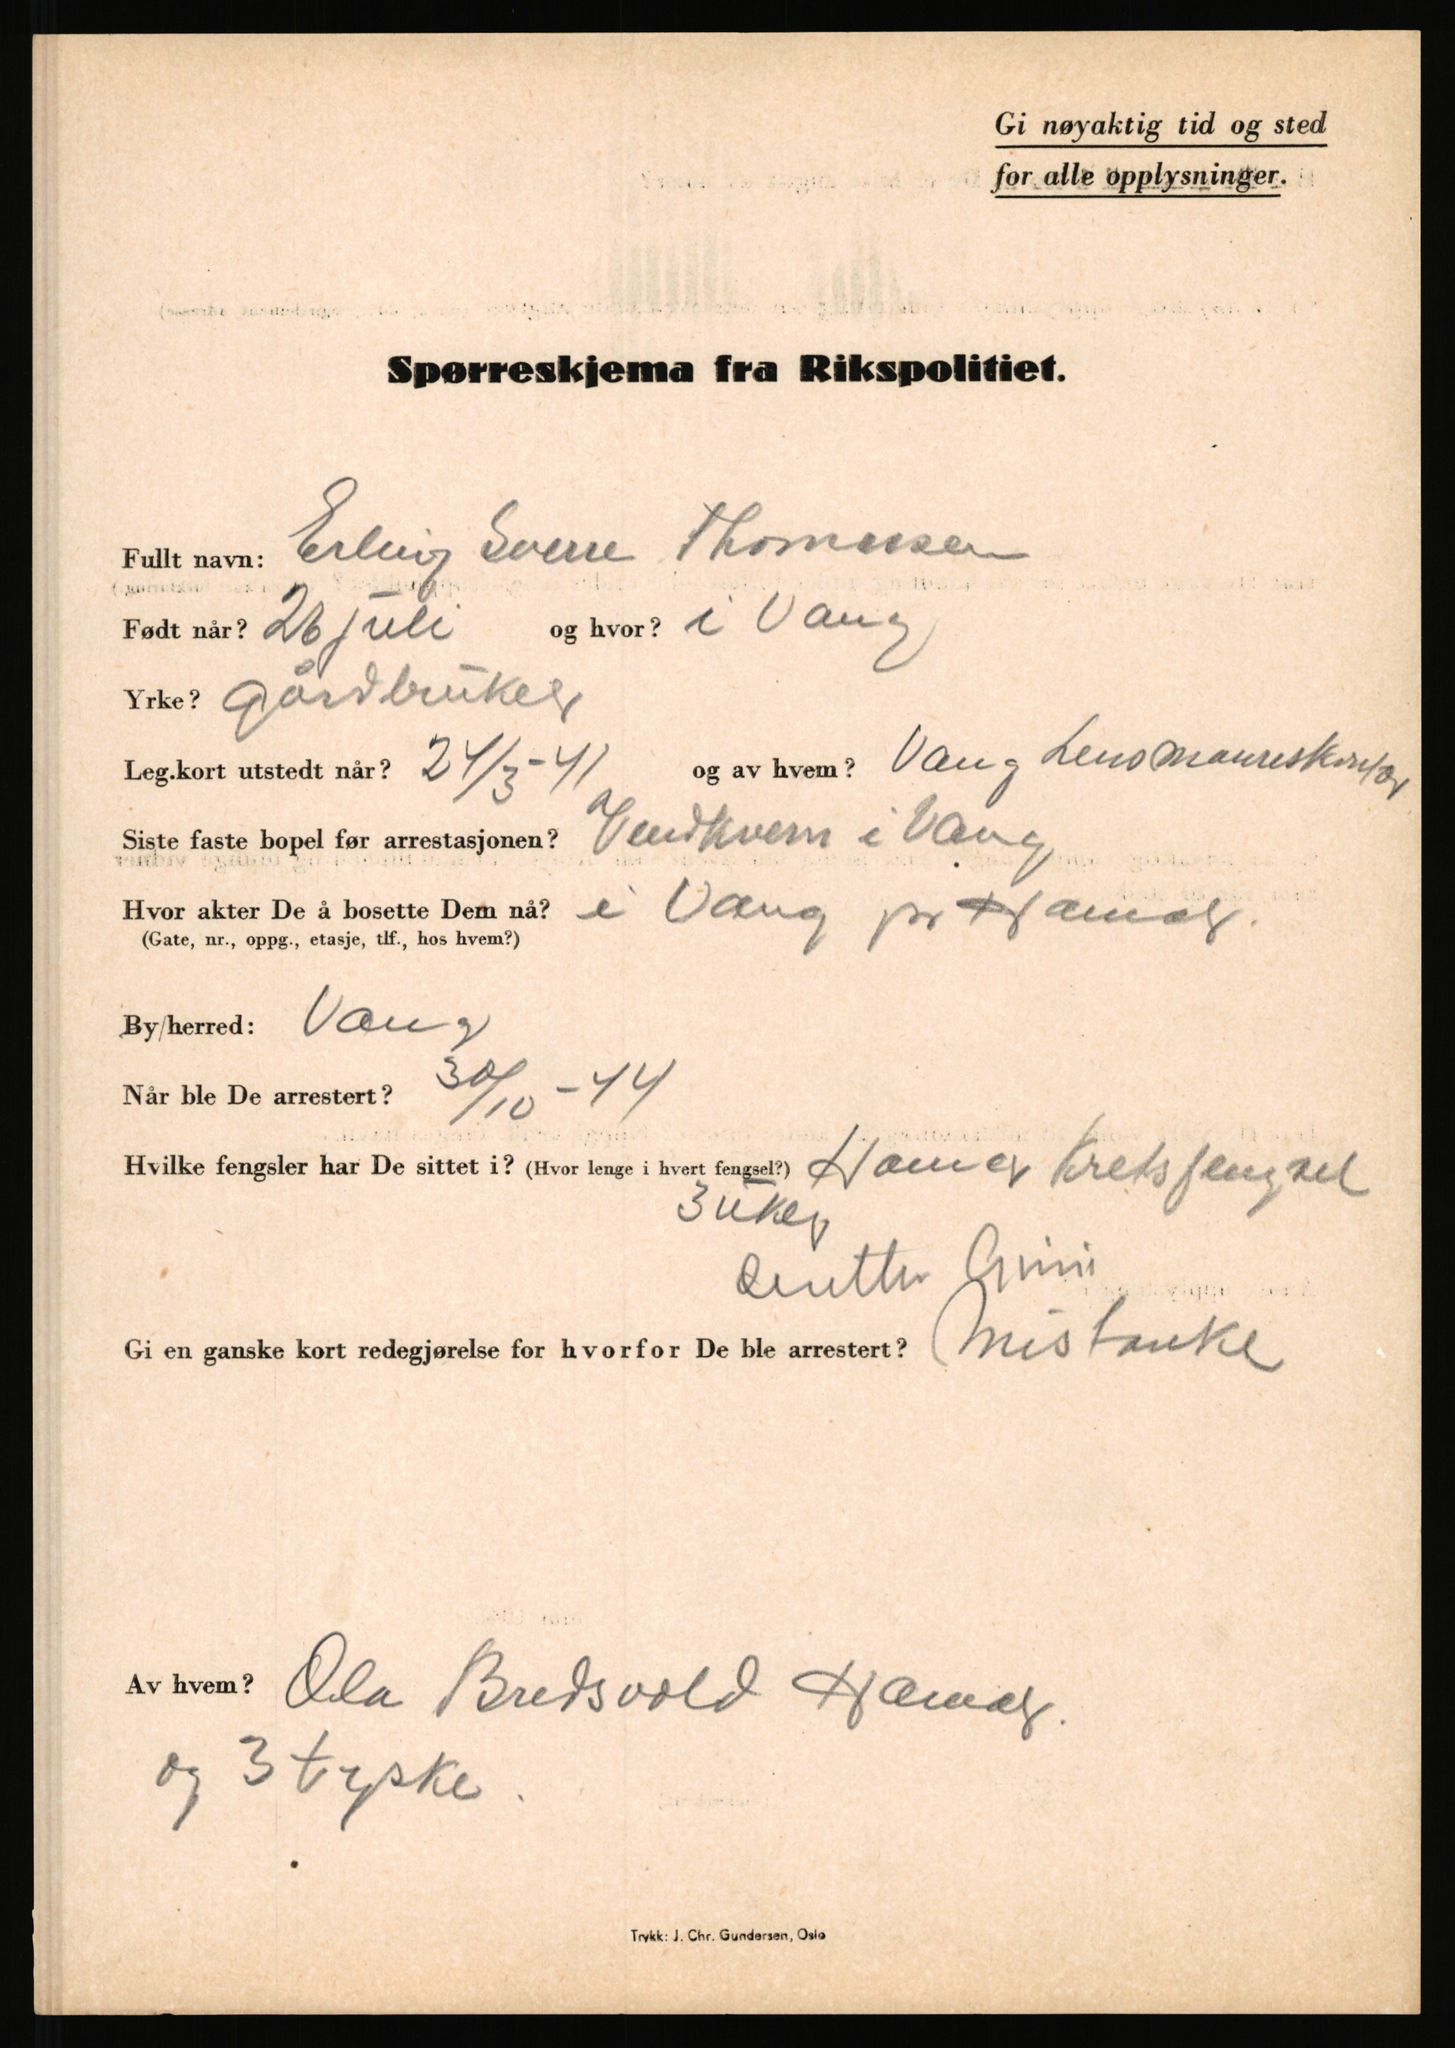 Gi nøyaktig tid og sted
for alle opplysninger.
Spørreskjema fra Rikspolitiet.
Fullt navn: Erling Sverre Thomassen
Født når? 26 juli og hvor? i Vang
Yrke? gårdbruker
Leg.kort utstedt når? 24/3-41 og av hvem? Vang Lensmannskontor
Siste faste bopel før arrestasjonen? Vendkvern i Vang
Hvor akter De å bosette Dem nå? i Vang pr Hamar.
(Gate, nr., oppg., etasje, tlf., hos hvem?)
By/herred: Vang
Når ble De arrestert? 30/10-44
Hvilke fengsler har De sittet i? (Hvor lenge i hvert fengsel?) Hamar Kretsfengsel
3 uker
Grini
Gi en ganske kort redegjørelse for hvorfor De ble arrestert? Mistanke
Av hvem? Ola Bredsvold Hamar.
og 3 tyske.
Trykk: J. Chr. Gundersen, Oslo